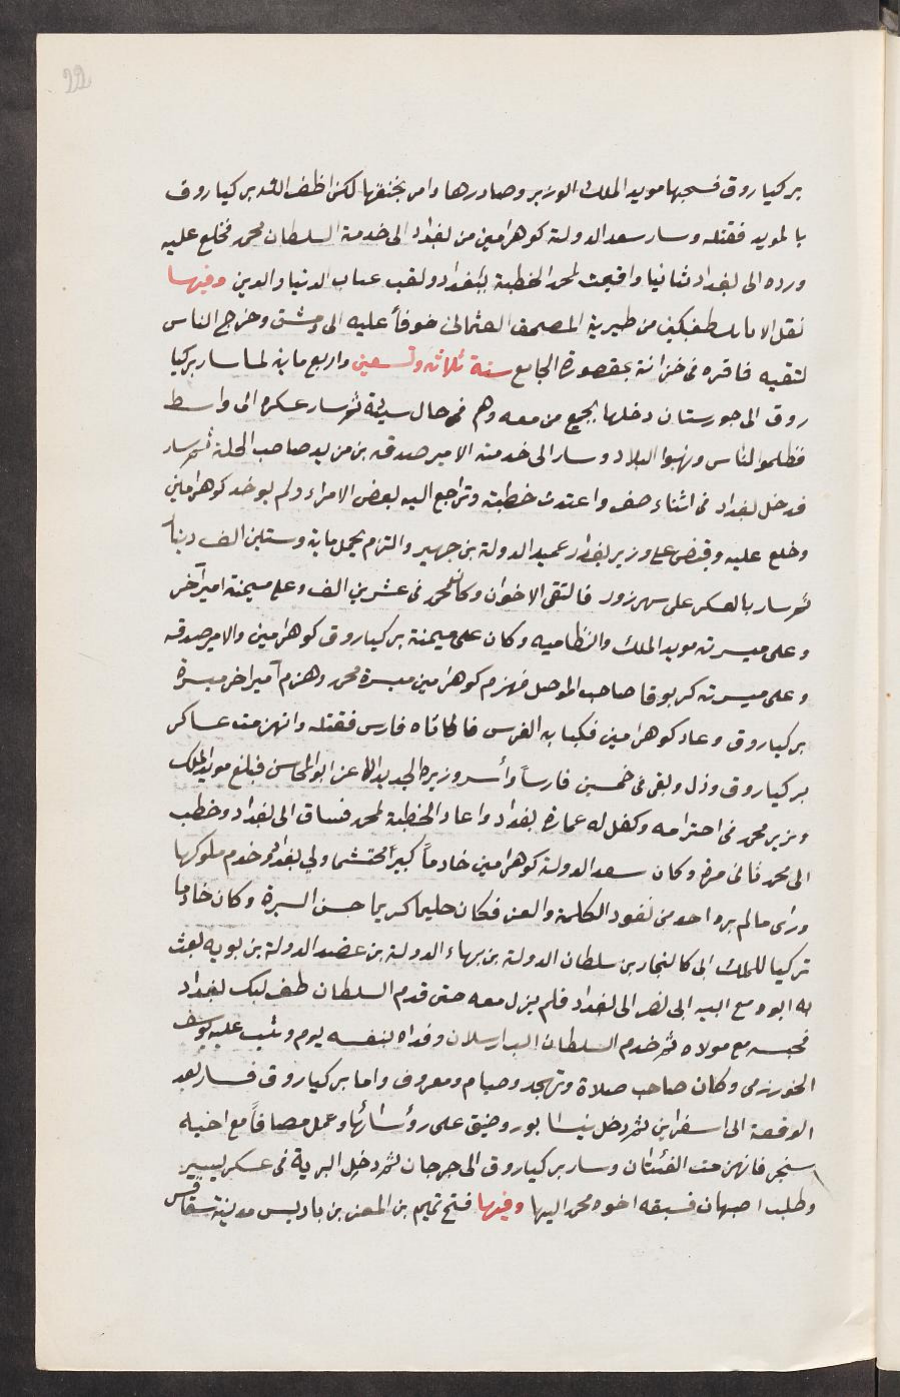 22
بركياروق فسجنها مويد الملك الوزير وصادرها وامر بخنقها لكن اظفر الله بركياروق
بالمويد فقتله وسار سعد الدولة كوهرامين من بغداد الى خدمة السلطان محمد فخلع عليه
ورده الى بغداد ثانيا واقيمت لمحمد الخطبة ببغداد ولقب غياث الدنيا والدين وفيها
نقل الاتابك طغتكين من طبرية المصحف العثماني خوفاً عليه الى دمشق وخرج الناس
لتقيه فاقره فى خزانة بمقصورة الجامع سنة ثلاثه وتسعين واربع ماية لما سار بركيا
روق الى خورستان دخلها بجميع من معه وهم فى حال سيئة ثم سار عسكره الى واسط
فظلموا الناس ونهبوا البلاد وسار الى خدمته الامير صدقه بن مزيد صاحب الحلة ثم سار
فدخل بغداد فى اثناء صفر واعتدت خطبته وتراجع اليه بعض الامراء ولم يوخد كوهرامين
وخلع عليه وقبض على وزير بغداد عميد الدولة بن جهير والتزم بحمل ماية وستين الف دينار
ثم سار بالعسكر على سهرزور فالتقى الاخوان وكان محمد فى عشرين الف وعلى ميمنته امير آخر
وعلى ميسرته مويد الملك والنظاميه وكان على ميمنة بركياروق كوهرامين والامير صدقه
وعلى ميسرته كربوقا صاحب الموصل فهزم كوهرامين ميسرة محمد وهزم آمير اخر ميسرة
بركياروق وعاد كوهرامين فكبا به الفرس فاتاه فارس فقتله وانهزمت عساكر
بركياروق وذل وبقى فى خمسين فارساً وأسر وزيره الجديد الاعز ابو المحاسن فبالغ مويد الملك
وزير محمد فى احترامه وكفل له عمارة بغداد واعاد الخطبة لمحمد فساق الى بغداد وخطب
الى محمد ثانى مرة وكان سعد الدولة كوهرامين خادماً كبيرًا محتشما ولي بغداد وخدم ملوكها
وراى مالم يره احد من نفود الكلمة والعز فكان حليما كريما حسن السيرة وكان خادما
تركيا للملك ابى كالنجار بن سلطان الدولة بن بهاء الدولة بن عضد الدولة بن بويه بعث
به ابوه مع ابنه ابى نصر الى بغداد فلم يزل معه حتى قدم السلطان طغرلبك بغداد
فحبسه مع مولاه ثم خدم السلطان البارسلان وفداه بنفسه يوم وثب عليه يوسف
الخورزمى وكان صاحب صلاة وتهجد وصيام ومعروف واما بركياروق فسار بعد
الوقعة الى اسفراين ثم دخل نيسابور وضيق على رؤسائها وعمل مصافاً مع اخيه
سنجر فانهزمت الفئتان وسار بركياروق الى جرجان ثم دخل البرية فى عسكر يسير
وطلب اصبهان فسبقه اخوه محمد اليها وفيها فتح تميم بن المعز بن باديس مدينة سفاقس